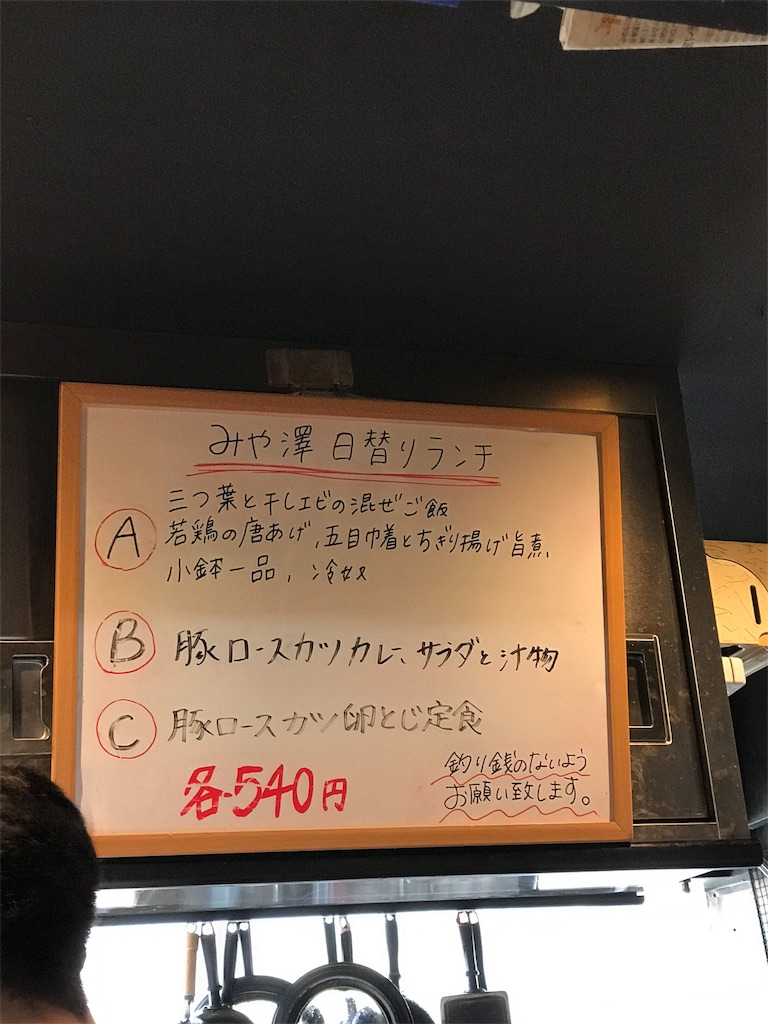 みや澤 日替りランチ
A
三つ葉と干しエビの混ぜご飯
若鶏の唐あげ、五目巾着とちぎり揚げ旨煮
小鉢一品、冷奴
B 豚ロースカツカレー、サラダと汁物
C 豚ロースカツ卵とじ定食
各540円
釣り銭のないよう
お願い致します。